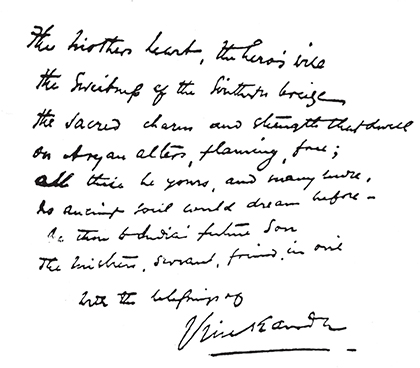 The Mothers heart, the hero's will
the Sweetness of the Southern breeze
the sacred charm and strength that dwell
on Aryan alters, flaming, free;
all these be yours, and many more,
No ancient soul could dream before –
Be thou to India's future Son
The Mistress, Servant, friend in one
With the blessings of
Vivekananda